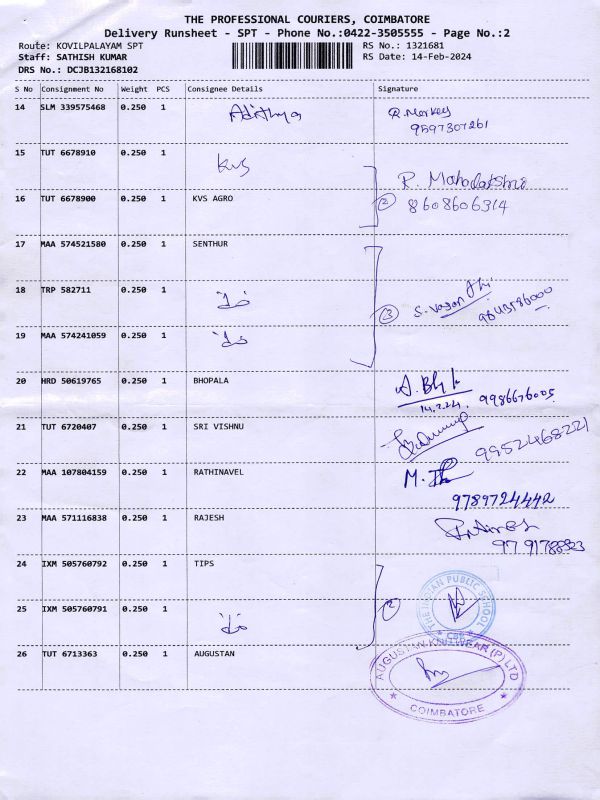 THE PROFESSIONAL COURIERS, COIMBATORE
Delivery Runsheet - SPT - Phone No.:0422-3505555 - Page No.:2
Route: KOVILPALAYAM SPT RS No.: 1321681
Staff: SATHISH KUMAR RS Date: 14-Feb-2024
DRS No.: DCJB132168102
S No Consignment No Weight PCS Consignee Details Signature
14 SLM 339575468 0.250 1 Adithya R. Markey
9597307261
15 TUT 6678910 0.250 1 KVS
R. Mahalakshmi
16 TUT 6678900 0.250 1 KVS AGRO 2 8608606314
17 MAA 574521580 0.250 1 SENTHUR
18 TRP 582711 0.250 1
3 S. Vasanthi
19 MAA 574241059 0.250 1
20 HRD 50619765 0.250 1 BHOPALA
14.2.24. 9986676005
21 TUT 6720407 0.250 1 SRI VISHNU 9952468221
22 MAA 107804159 0.250 1 RATHINAVEL M.
9789724442
23 MAA 571116838 0.250 1 RAJESH
24 IXM 505760792 0.250 1 TIPS
THE INDIAN PUBLIC SCHOOL
25 IXM 505760791 0.250 1 2
CBE
26 TUT 6713363 0.250 1 AUGUSTAN
AUGUSTAN KNITWEAR (P) LTD
COIMBATORE